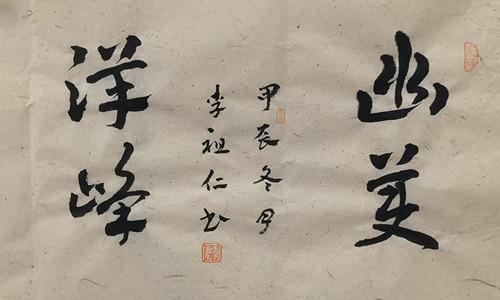 幽美
洋峰
甲辰冬月
李祖仁书